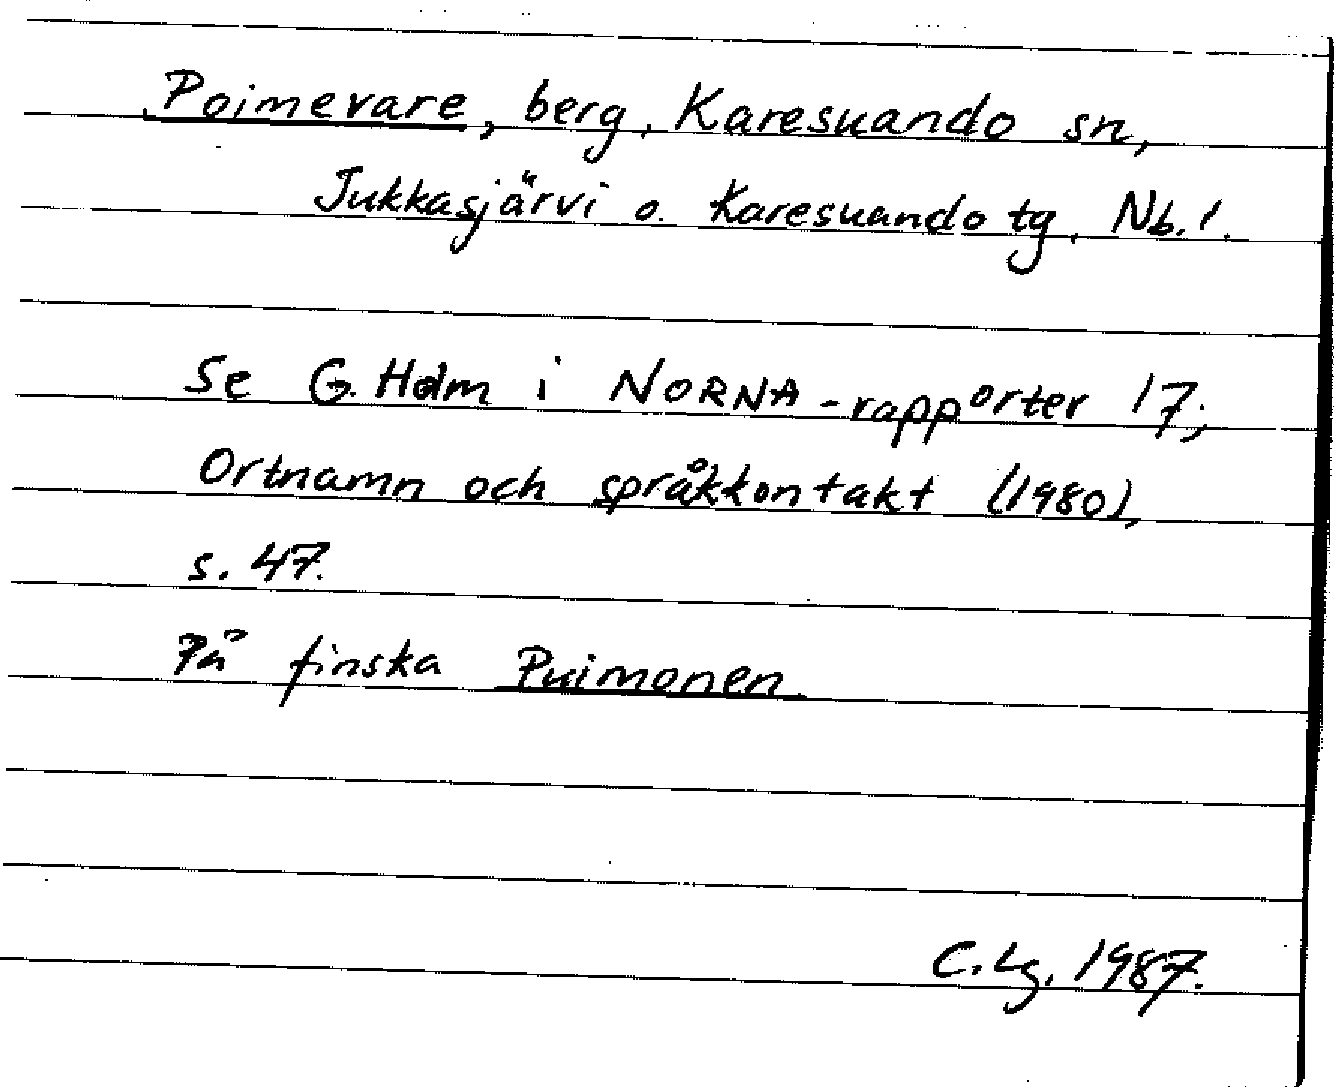 Poimevare, berg, Karesuando sn,
Jukkasjärvi o. Karesuando tg, Nb.l.
Se G. Holm i NORNA-rapporter 17;
Ortnamn och språkkontakt (1980),
s. 47.
På finska Puimonen.
C.Lg. 1987.